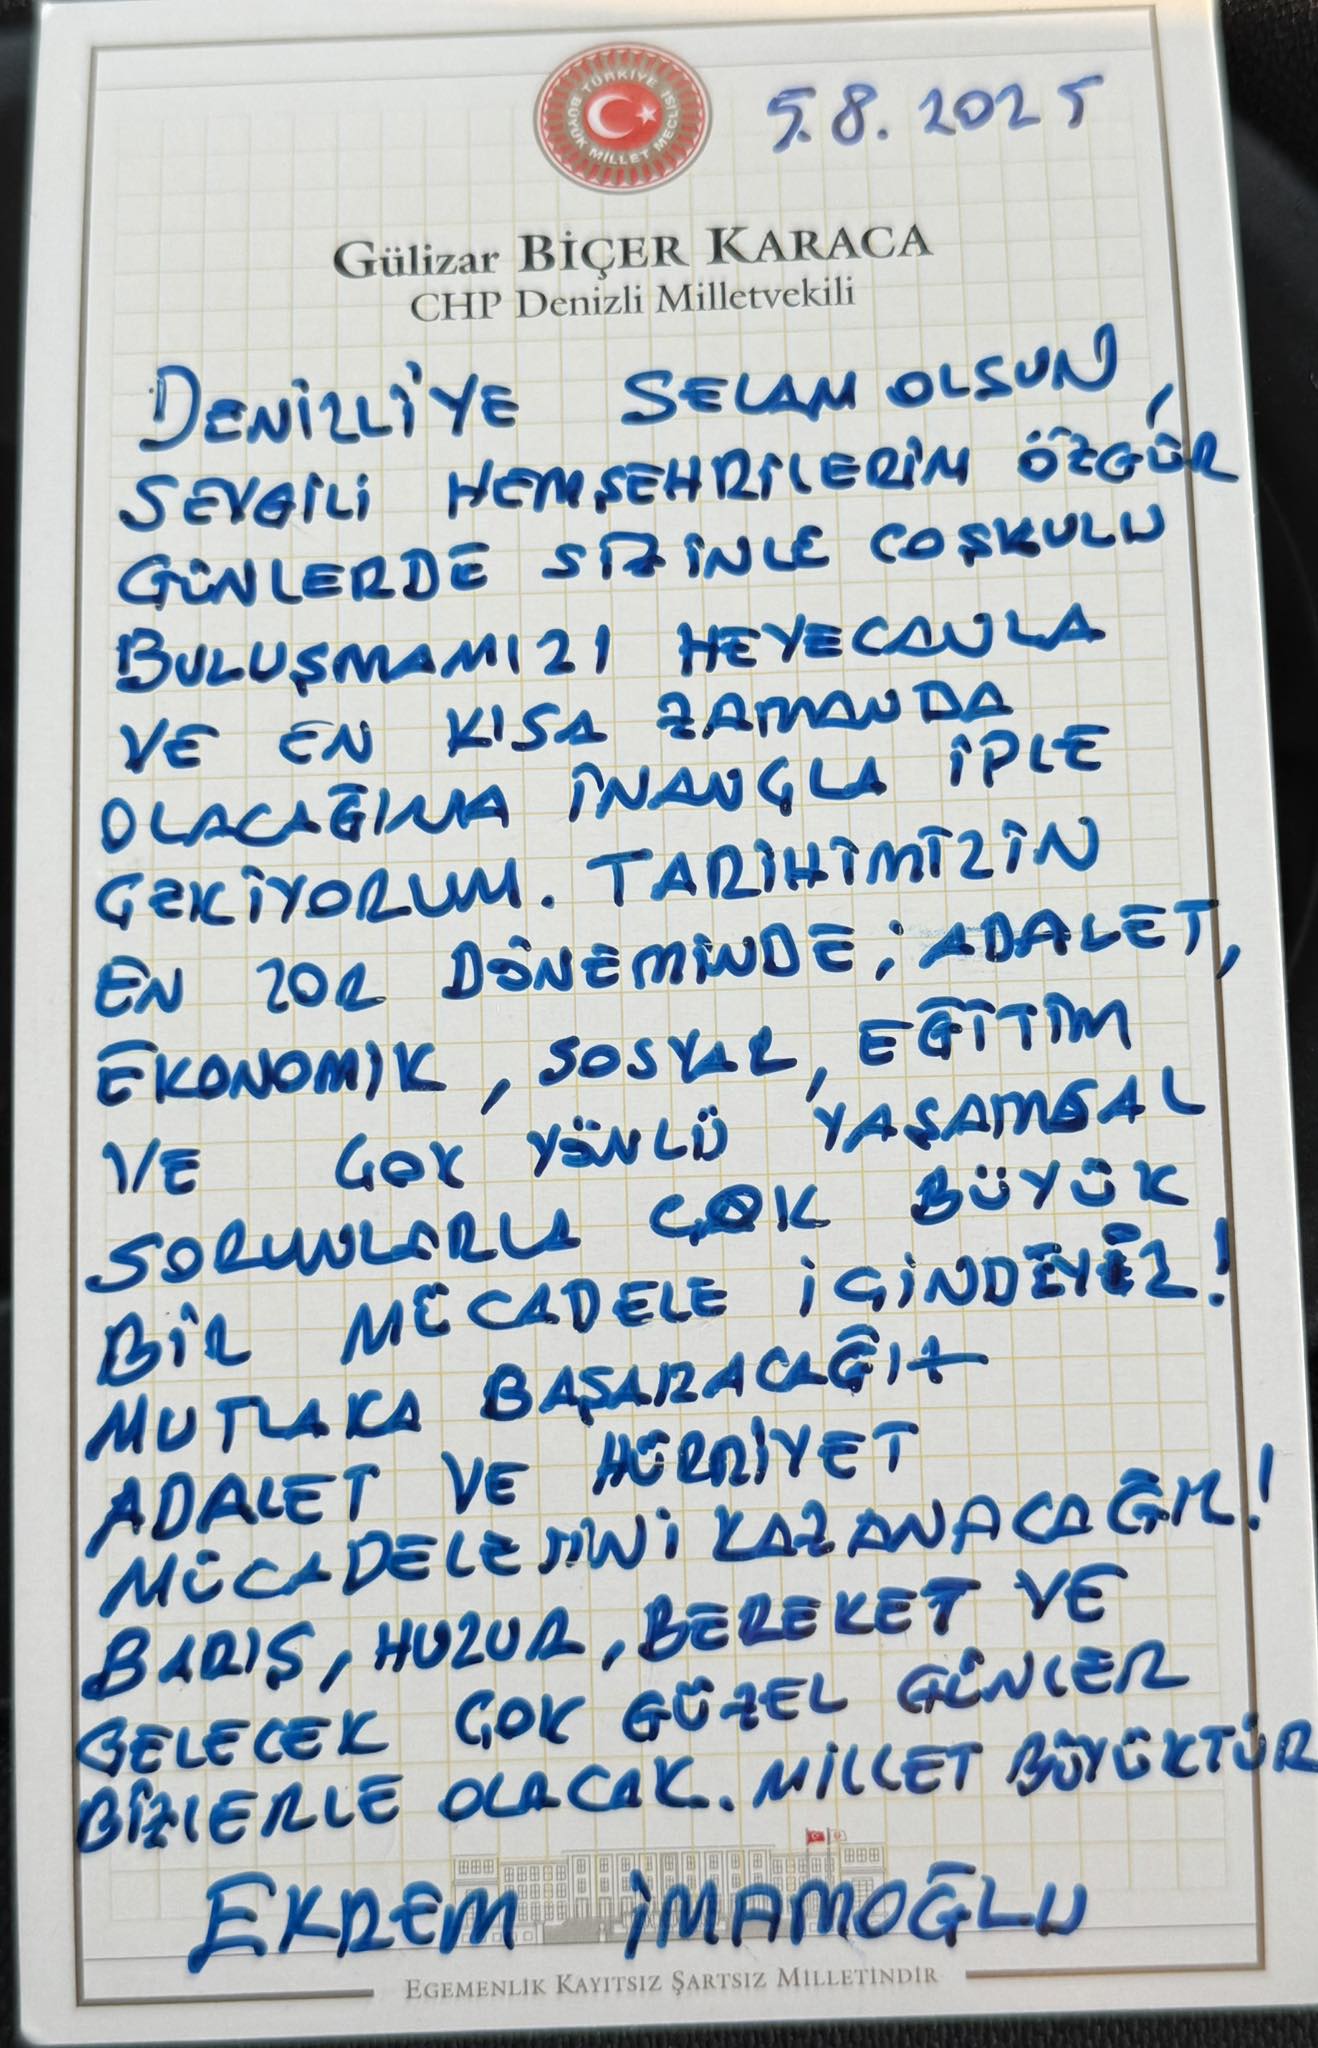 TÜRKİYE BÜYÜK MİLLET MECLİSİ
5.8.2025
Gülizar BİÇER KARACA
CHP Denizli Milletvekili
DENİZLİ'YE SELAM OLSUN,
SEVGİLİ HEMŞEHRİLERİM ÖZGÜR
GÜNLERDE SİZİNLE COŞKULU
BULUŞMAMIZI HEYECANLA
VE EN KISA ZAMANDA
OLACAĞINA İNANÇLA İPLE
ÇEKİYORUM. TARİHİMİZİN
EN ZOR DÖNEMİNDE; ADALET,
EKONOMİK, SOSYAL, EĞİTİM
VE ÇOK YÖNLÜ YAŞAMSAL
SORUNLARLA ÇOK BÜYÜK
BİR MÜCADELE İÇİNDEYİZ!
MUTLAKA BAŞARACAĞIZ
ADALET VE HÜRRİYET
MÜCADELEMİZİ KAZANACAĞIZ!
BARIŞ, HUZUR, BEREKET VE
GELECEK ÇOK GÜZEL GÜNLER
BİZLERLE OLACAK. MİLLET BÜYÜKTÜR
EKREM İMAMOĞLU
EGEMENLİK KAYITSIZ ŞARTSIZ MİLLETİNDİR